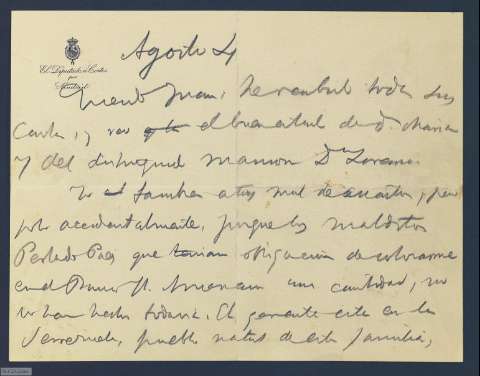 El Diputado a Cortes
por
Madrid
Agosto 4
Querido Juan: He recibido todas sus
Cartas, y veo el buen estado de D. Maria
y del
Yo tambien mal de cuartos, pero
solo accidentalmente, porque los malditos
Perlado Paez que tenian obligacion de
en el Banco H. Americano una cantidad, no
lo han hecho todavia. El gerente esta en la
pueblo natal de esta familia,